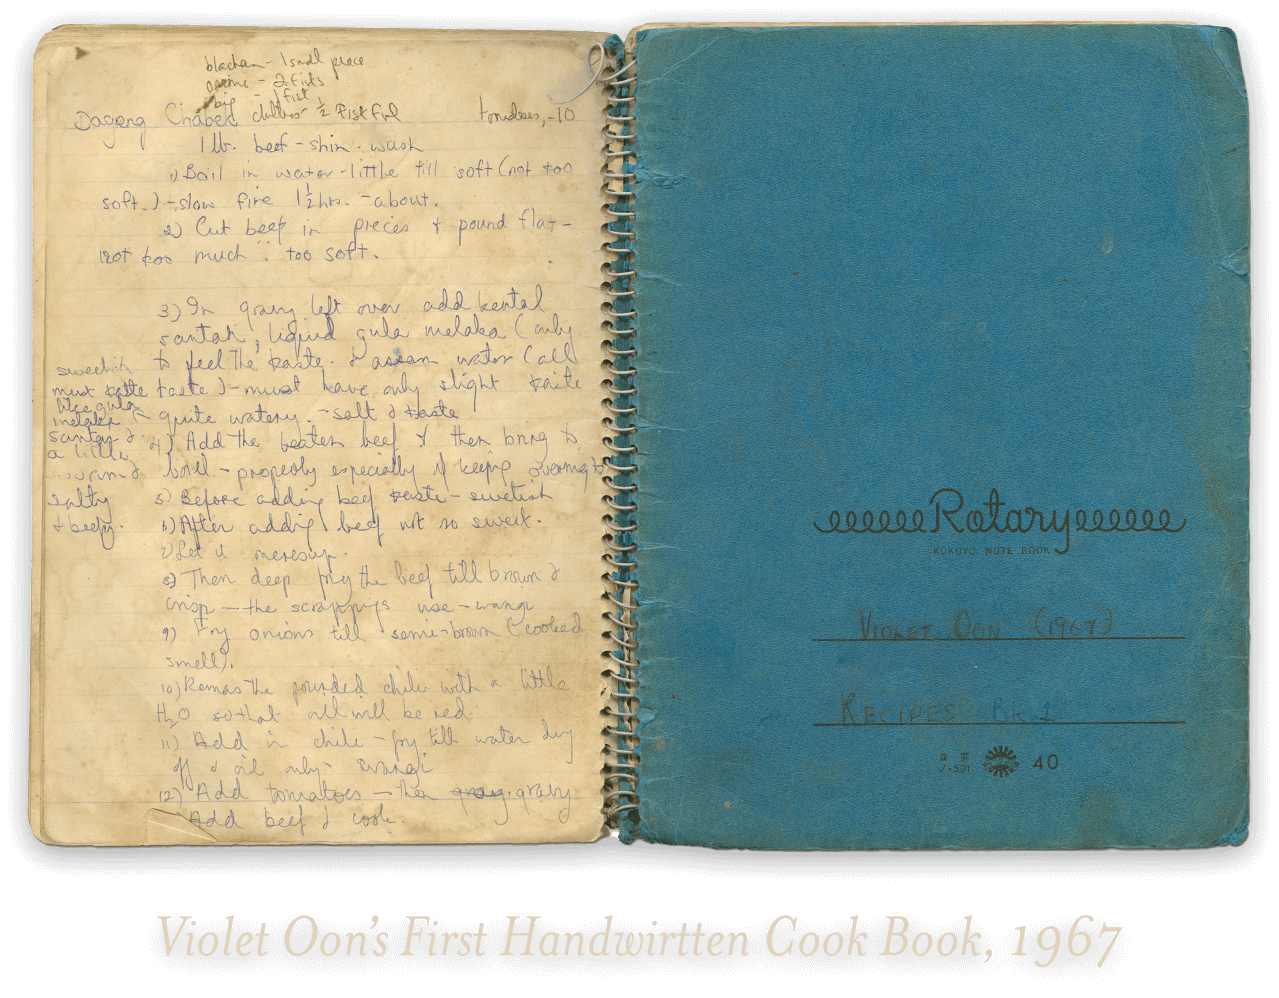 blachan - 1 small piece
onions - 2 fists
big - 1 fist
Dageng Chabek chillies ½ Fistful tomatoes, - 10
1 lb. beef - shin - wash
1) Boil in water - little till soft (not too
soft.) - slow fire 1½ hrs. - about.
2) Cut beef in pieces & pound flat -
not too much ∵ too soft.
3) In gravy left over add kental
santan, liquid gula melaka (only
to feel the taste & assam water (all
taste) - must have only slight taste
quite watery. - salt & taste
sweetish
must taste
like gula
melaka
santan &
a little
&
salty
& beefy.
4) Add the beaten beef & then bring to
boil - properly especially if keeping overnight
5) Before adding beef taste - swetish
6) After adding beef not so sweet.
7) Let it meresap.
8) Then deep fry the beef till brown &
crisp - the scrappings use - wangi
9) Fry onions till semi-brown (cooked
smell).
10) Remas the pounded chili with a little
H2O so that all will be red.
11) Add in chili - fry till water dry
off & oil only - wangi
12) Add tomatoes - then gravy
Add beef & cook.
Rotary
KOKUYO NOTE BOOK
VIOLET OON (1967)
RECIPES BK 1
ノ-591 40
Violet Oon's First Handwirtten Cook Book, 1967